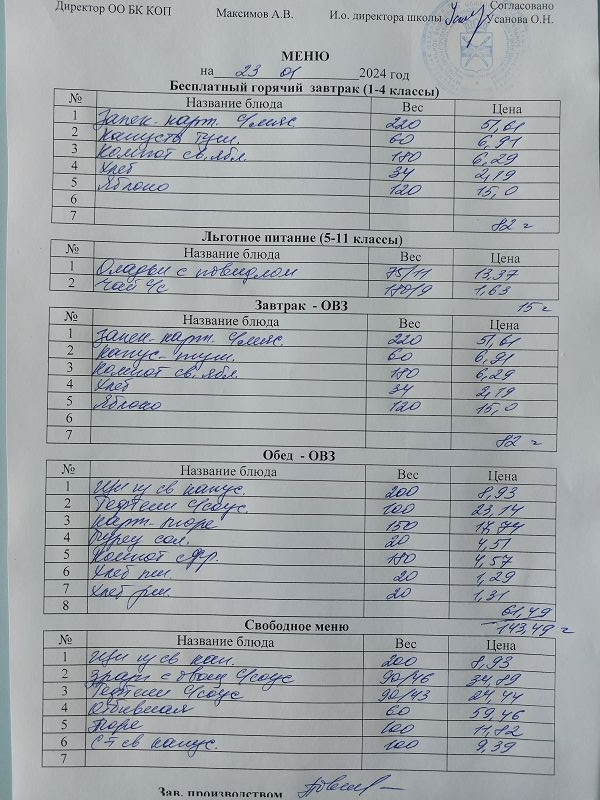 Согласовано
Директор ОО БК КОП Максимов А.В. И.о. директора школы Усанова О.Н.
МЕНЮ
на 23 01 2024 год
Бесплатный горячий завтрак (1-4 классы)
№ Название блюда Вес Цена
1 Запек. карт. с/мяс. 220 51,61
2 Капуста туш. 60 6,91
3 Компот св.ябл. 180 6,29
4 Хлеб 34 2,19
5 Яблоко 120 15,0
6
7 82 =
Льготное питание (5-11 классы)
№ Название блюда Вес Цена
1 Оладьи с повидлом 75/11 13,37
2 Чай с/с 180/9 1,63
15 =
Завтрак - ОВЗ
№ Название блюда Вес Цена
1 Запек. карт. с/мяс. 220 51,61
2 Капус. туш. 60 6,91
3 Компот св.ябл. 180 6,29
4 Хлеб 34 2,19
5 Яблоко 120 15,0
6
7 82 =
Обед - ОВЗ
№ Название блюда Вес Цена
1 Щи из св капус. 200 8,93
2 Тефтели с/соус. 100 23,14
3 Карт. пюре 150 17,74
4 Огурец сол. 20 4,51
5 Компот с/фр. 180 4,57
6 Хлеб пш. 20 1,29
7 Хлеб рж. 20 1,31
8 61,49
143,49 =
Свободное меню
№ Название блюда Вес Цена
1 Щи из св кап. 200 8,93
2 с овощ с/соус 90/46 34,89
3 Тефтели с/соус 90/43 24,44
4 Отбивная 60 59,46
5 Пюре 100 11,82
6 С-т св капус. 100 9,39
7
Зав. производством